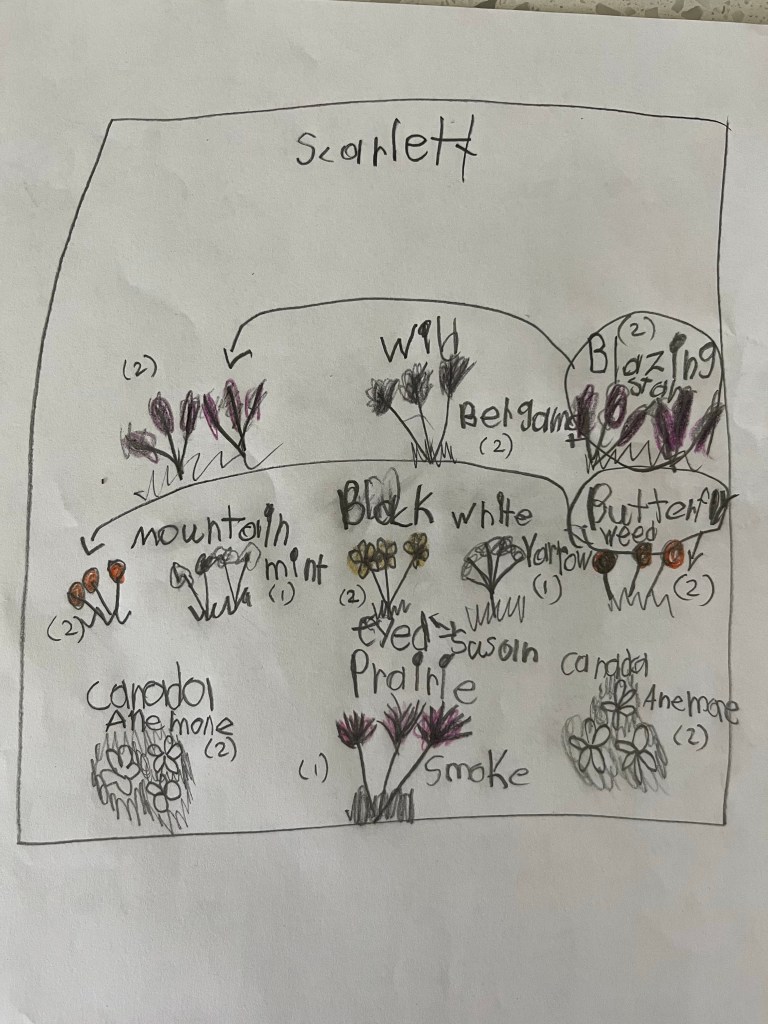 Scarlett
(2)
Wild
Bergamot
(2)
(2)
Blazing
Star
Mountain
mint
(1)
(2)
Black
(2)
eyed Susan
White
Yarrow
(1)
Butterfly
weed
(2)
Canada
Anemone
(2)
Prairie
(1)
Smoke
Canada
Anemone
(2)